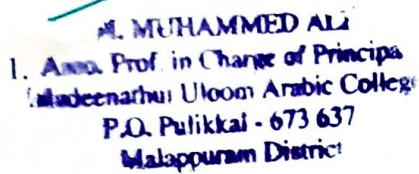 M. MUHAMMED ALI
1. Asso. Prof. in Charge of Principa
Madeenathul Uloom Arabic College
P.O. Pulikkal - 673 637
Malappuram District